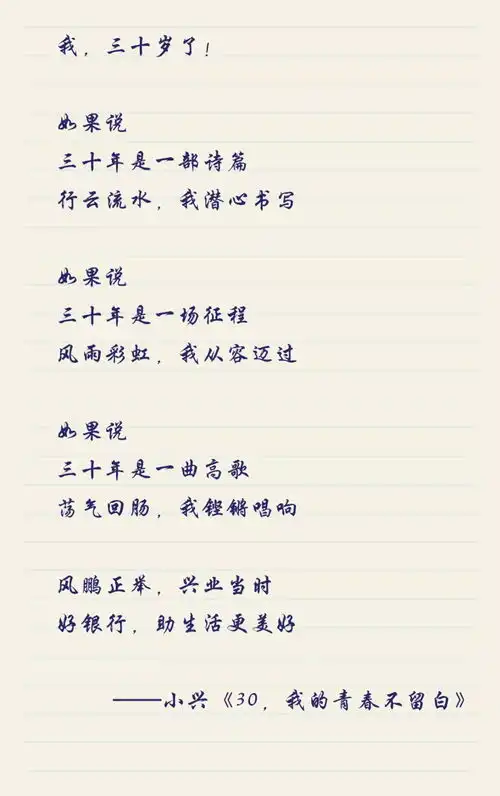 我，三十岁了！
如果说
三十年是一部诗篇
行云流水，我潜心书写
如果说
三十年是一场征程
风雨彩虹，我从容迈过
如果说
三十年是一曲高歌
荡气回肠，我铿锵唱响
风鹏正举，兴业当时
好银行，助生活更美好
——小兴《30，我的青春不留白》